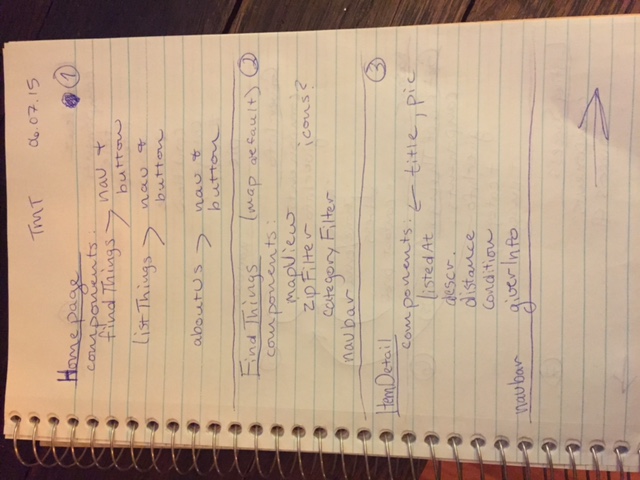 TMT 06.07.15
Homepage 1
components:
findThings > nav +
button
listThings > nav &
button
aboutUs > nav &
button
Find Things (map default) 2
components:
mapView
zipFilter icons?
categoryFilter
navbar
ItemDetail 3
components: ← title, pic
listedAt
descr.
distance
condition
navbar giverInfo
→